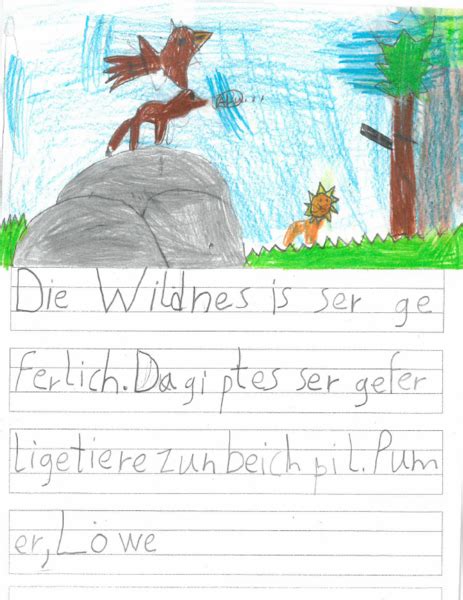 Die Wildnes is ser ge
ferlich. Da gi ptes ser gefer
ligetiere zun beich pil. Pum
er, Löwe